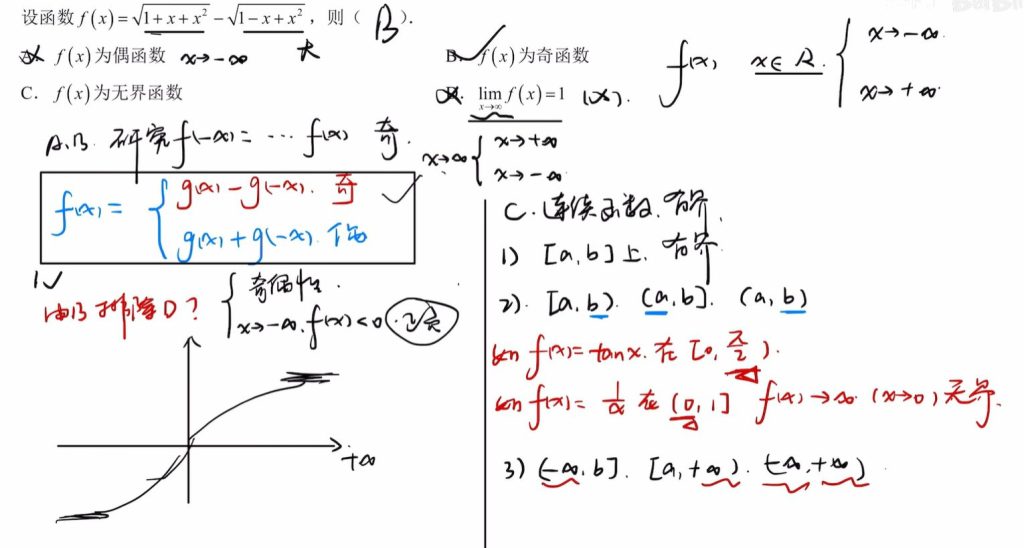 设函数 f(x)=√(1+x+x²)−√(1−x+x²)，则（ B ）.
A. f(x)为偶函数 x→-∞ 大
B. f(x)为奇函数
C. f(x)为无界函数
D. lim x→∞ f(x)=1 (x).
f(x), x∈R. { x→-∞
x→+∞
x→∞ { x→+∞
x→-∞
A.B. 研究 f(-x)= … f(x) 奇.
f(x)= { g(x)-g(-x). 奇
g(x)+g(-x). 偶
由B排除D?
{ 奇偶性.
x→-∞, f(x)<0.
+∞
C. 连续函数.有界.
1) [a,b]上.有界
2). [a,b). (a,b]. (a,b)
f(x)=tanx.在[0,π/2).
f(x)=1/x 在(0,1] f(x)→∞ (x→0)无界.
3) (-∞,b]. [a,+∞). (-∞,+∞).